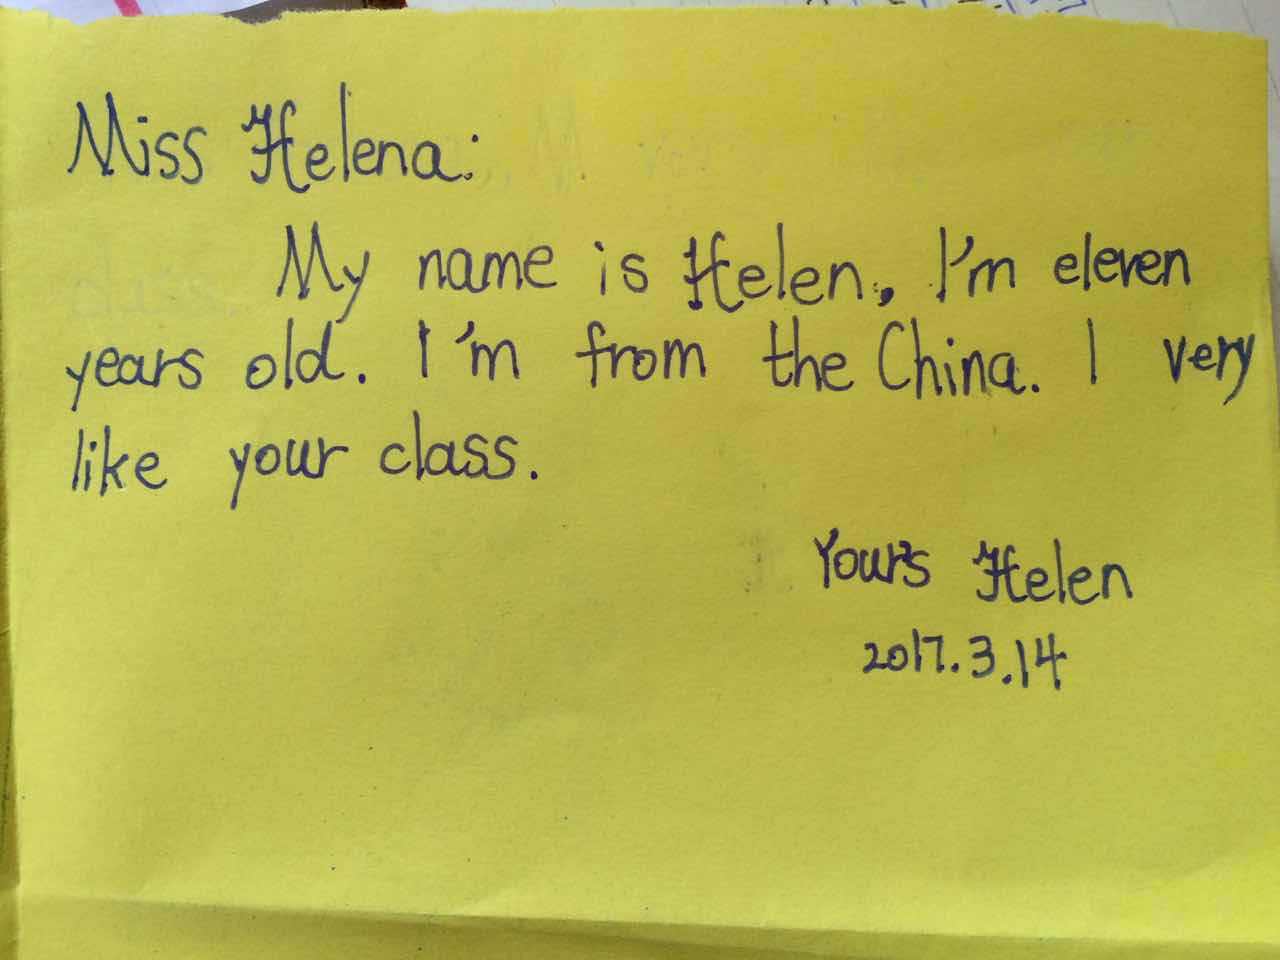 Miss Helena:
My name is Helen, I'm eleven
years old. I'm from the China. I very
like your class.
Yours Helen
2017.3.14